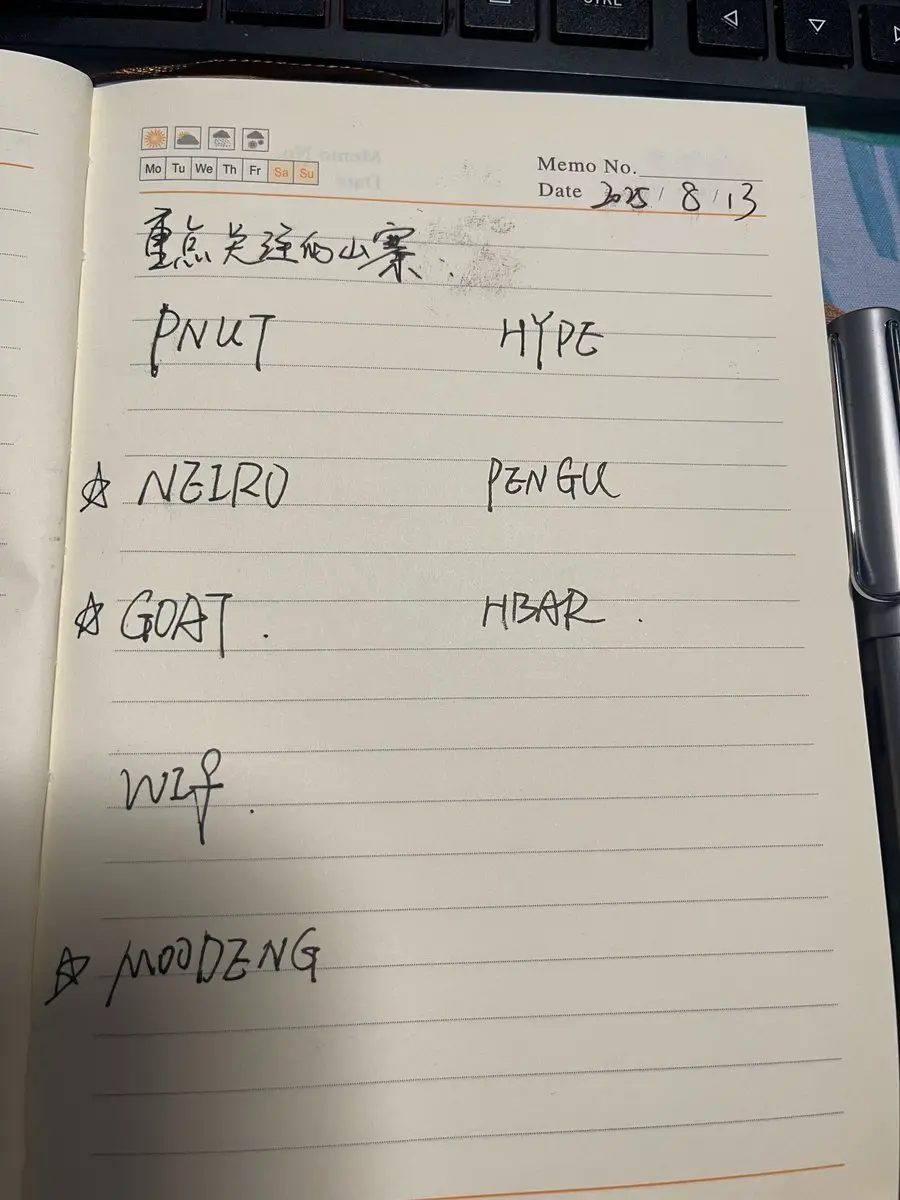 CTRL
Mo Tu We Th Fr Sa Su
Memo No.
Date 2025 / 8 / 13
重点关注的山寨.
PNUT HYPE
☆ NEIRO PENGU
☆ GOAT. HBAR.
WIf.
☆ MOODENG